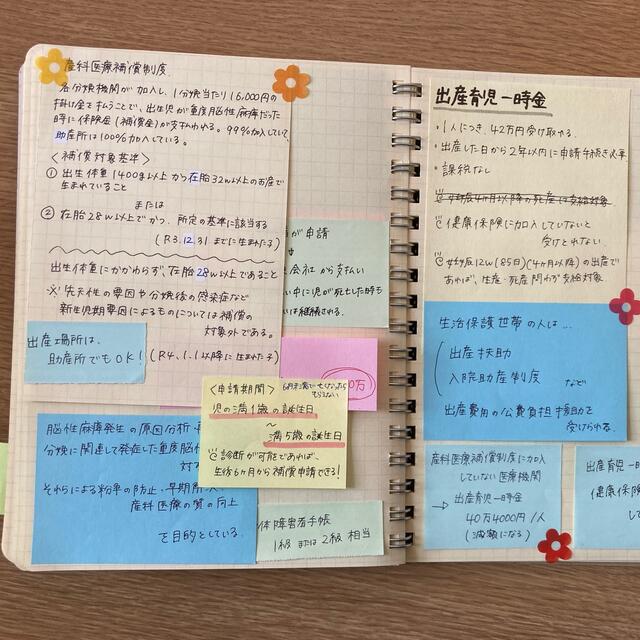 産科医療補償制度
各分娩機関が加入し、1分娩当たり16,000円の
掛け金を払うことで、出生児が重度脳性麻痺だった
時に保険金(補償金)が支払われる。99%加入していて、
助産所は100%加入している。
<補償対象基準>
① 出生体重1400g以上かつ在胎32w以上のお産で
生まれていること
または
② 在胎28w以上でかつ、所定の基準に該当する
(R3.12.31までに生まれた子)
出生体重にかかわらず、在胎28w以上であること
※先天性の要因や分娩後の感染症など
新生児期要因によるものについては補償の
対象外である。
(R4.1.1以降に生まれた子)
出産場所は、
助産所でもOK!
が申請
会社から支払い
い中に児が死亡した時も
は継続される。
万
<申請期間>
6ヶ月未満で亡くなったら
もらえない
児の満1歳の誕生日
~
満5歳の誕生日
診断が可能であれば、
生後6ヶ月から補償申請できる!
脳性麻痺発生の原因分析・
分娩に関連して発症した重度脳性
それらによる紛争の防止・早期
産科医療の質の向上
を目的としている。
体障害者手帳
1級または2級相当
出産育児一時金
・1人につき、42万円受け取れる。
・出産した日から2年以内に申請手続き必要
・課税なし
妊娠4ヶ月以降の死産は支給対象
健康保険に加入していないと
受けとれない。
妊娠12w(85日)(4ヶ月以降)の出産で
あれば、生産・死産問わず支給対象。
生活保護世帯の人は…
出産扶助
入院助産制度 など
出産費用の公費負担・援助を
受けられる。
産科医療補償制度に加入
していない医療機関
→ 出産育児一時金
40万4000円/人
(減額になる)
出産育児一
健康保険
し